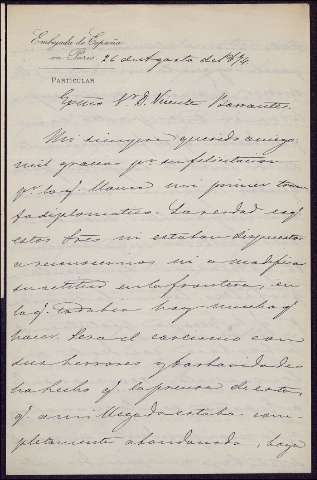 Embajada de España
en Paris 26 de Agosto de 1874
PARTICULAR
Exmo Sr. D. Vicente Barrantes.
Mi siempre querido amigo:
mil gracias pr. su felicitacion
pr. lo q. llama mi primer triun
fo diplomatico. La verdad es q.
estos Sres. ni estaban dispuestos
a reconocernos ni a modificar
su actitud en la frontera, en
la q. todabia hay mucho q.
hacer. Pero el carlismo con
sus horrores y barbaridades
ha hecho q. la prensa de esta,
q. a mi llegada estaba com-
pletamente abandonada, haya